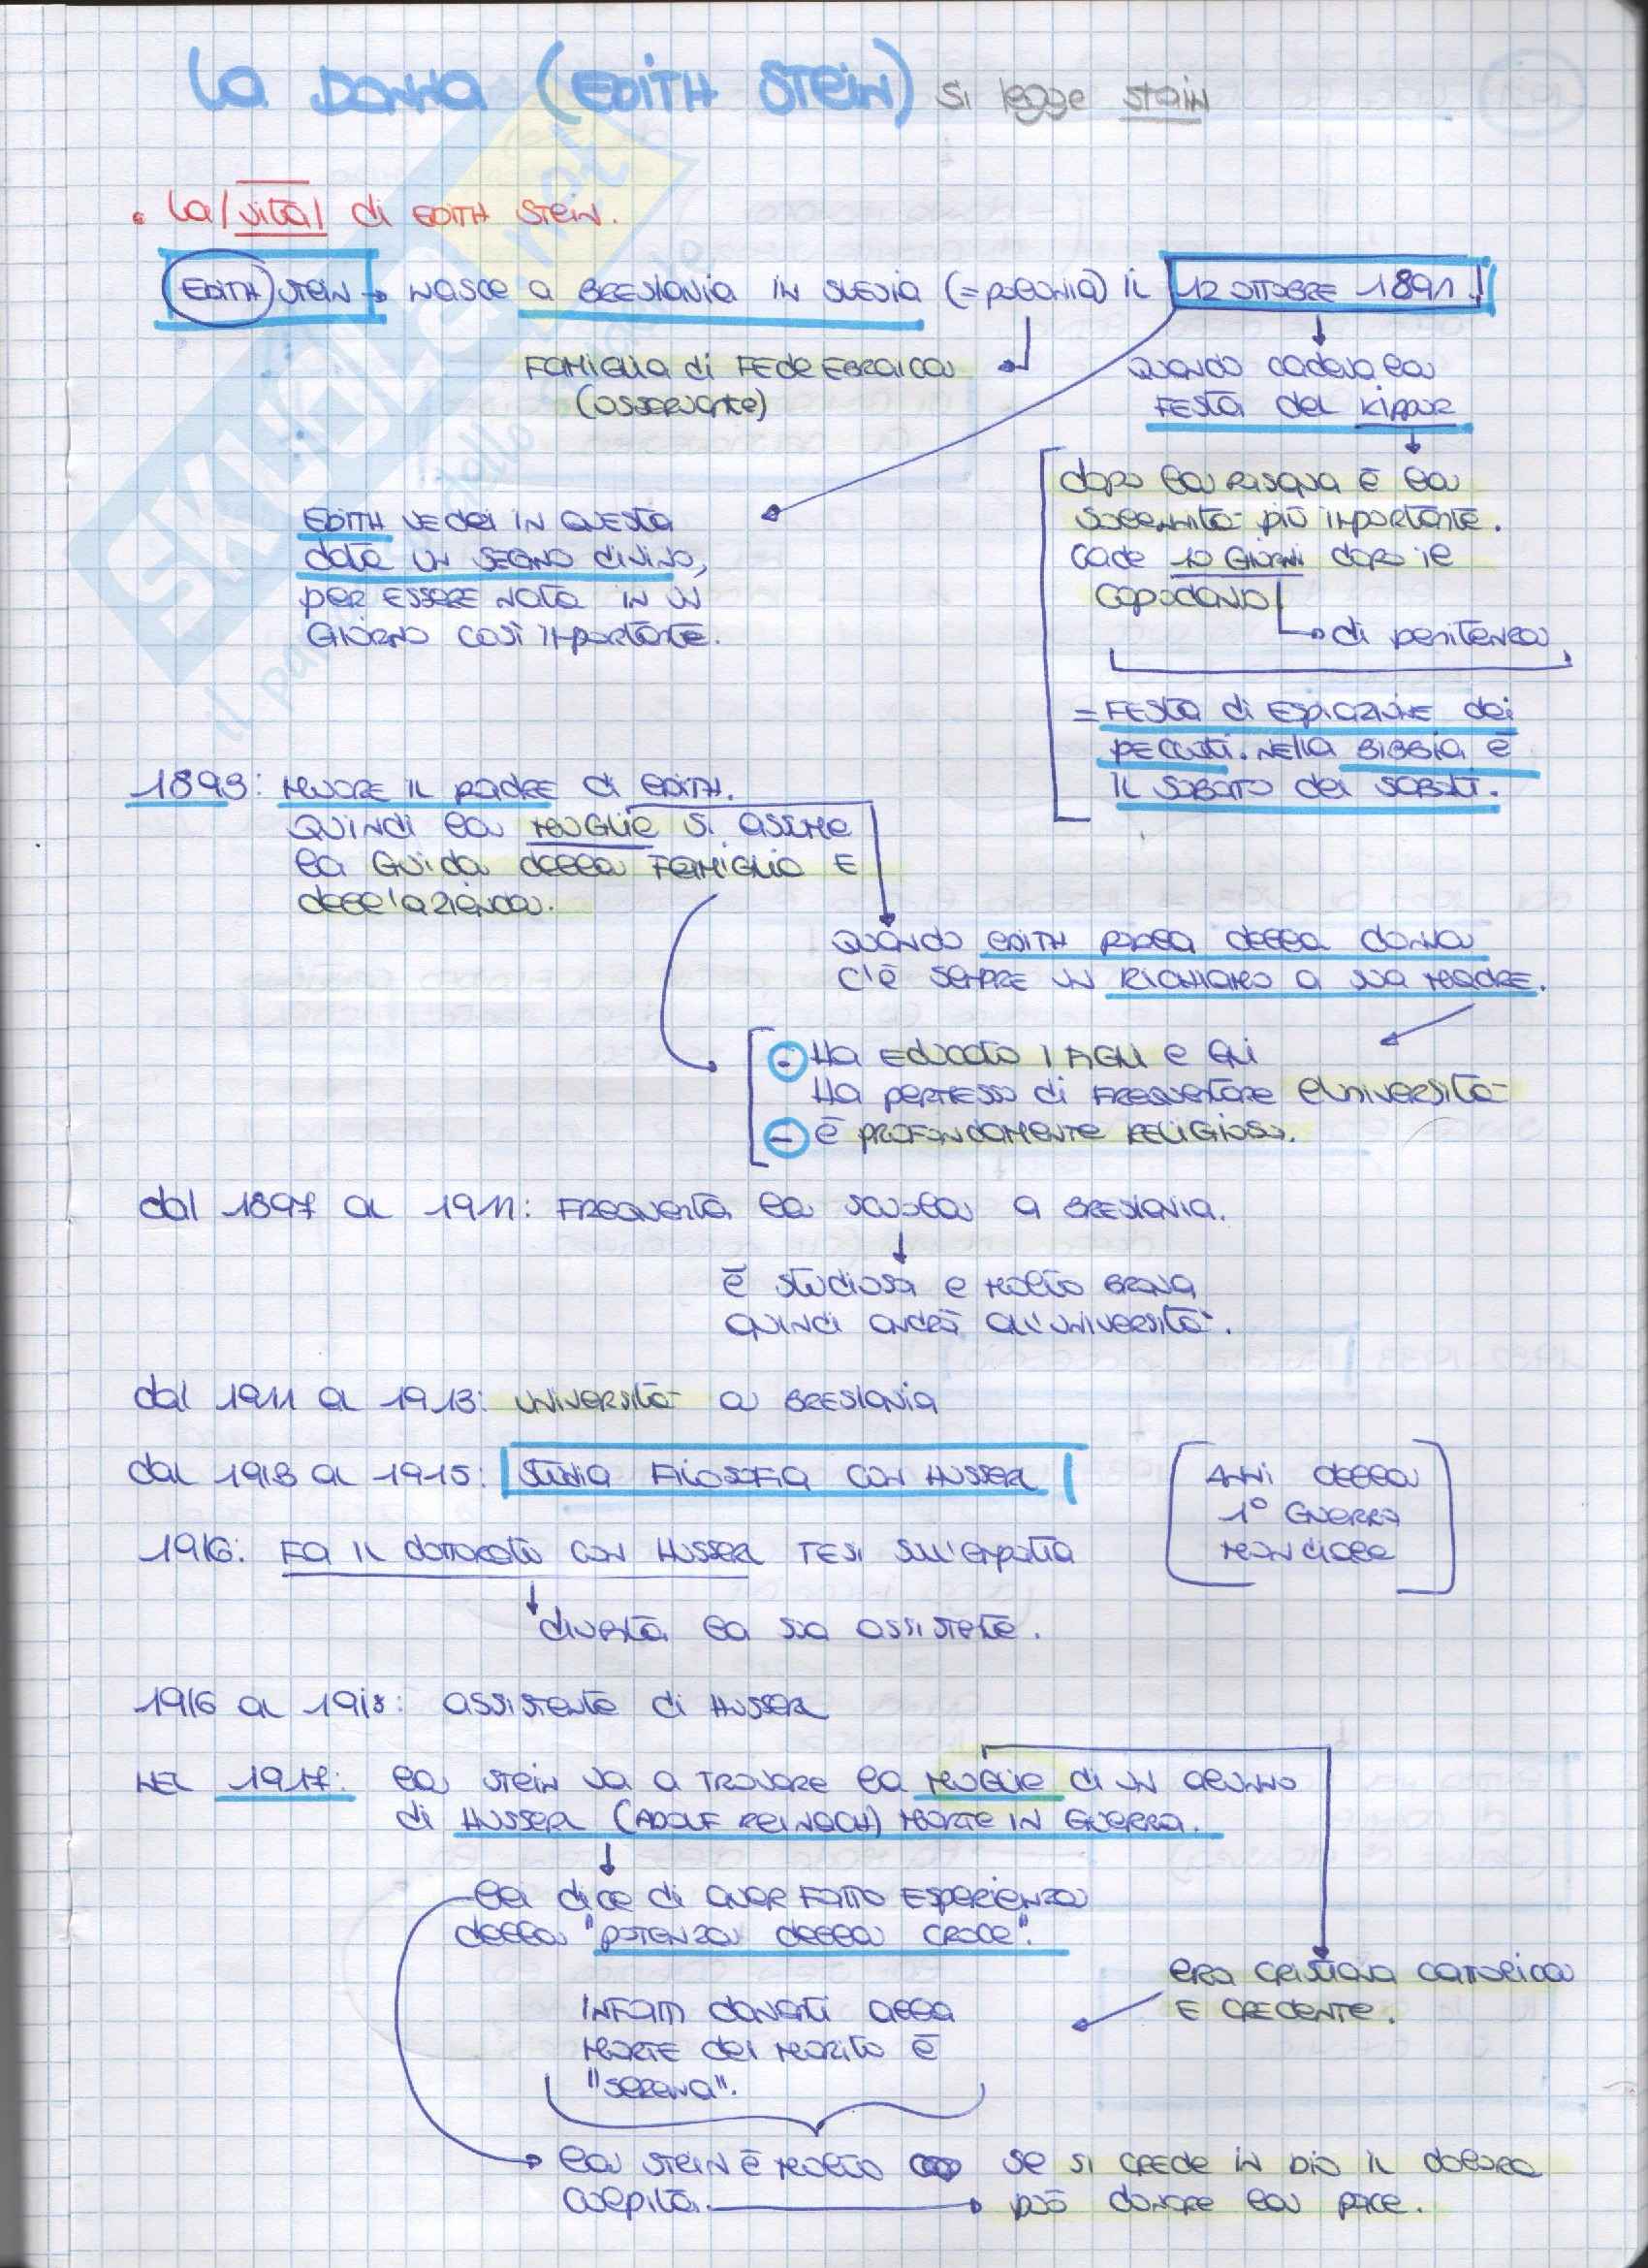 La Donna (EDITH STEIN) si legge stain
• La vita di EDITH STEIN.
EDITH STEIN → nasce a BRESLAVIA IN SLESIA (=POLONIA) IL 12 OTTOBRE 1891.
FAMIGLIA di FEDE EBRAICA
(osservante)
QUANDO cadeva la
FESTA del KIPPUR
dopo la PASQUA è la
solennità più importante.
cade 10 GIORNI dopo il
capodanno
→ di penitenza
= FESTA di ESPIAZIONE dei
PECCATI. NELLA BIBBIA è
IL SABATO dei SABATI.
EDITH VEDE IN QUESTA
data UN SEGNO divino,
per ESSERE NATA IN UN
GIORNO COSÌ IMPORTANTE.
1893: MUORE IL PADRE di EDITH.
QUINDI la MOGLIE SI ASSUME
la GUIDA della FAMIGLIA E
dell'azienda.
QUANDO EDITH PARLA della donna
C'È SEMPRE UN RICHIAMO a SUA MADRE.
- Ha EDUCATO I FIGLI e gli
Ha PERMESSO di FREQUENTARE l'università
- è PROFONDAMENTE RELIGIOSA.
dal 1897 al 1911: FREQUENTA la scuola a BRESLAVIA.
è studiosa e molto BRAVA
QUINDI andrà all'UNIVERSITÀ.
dal 1911 al 1913: UNIVERSITÀ a BRESLAVIA
dal 1913 al 1915: STUDIA FILOSOFIA CON HUSSERL
[ANNI della
1° GUERRA
MONDIALE]
1916: FA IL dottorato con HUSSERL TESI SULL'EMPATIA
diventa la sua assistente.
1916 al 1918: assistente di HUSSERL
NEL 1917: la STEIN va a TROVARE la MOGLIE di UN alunno
di HUSSERL (ADOLF REINACH) MORTE IN GUERRA.
lei dice di aver FATTO ESPERIENZA
della "POTENZA della CROCE".
ERA CRISTIANA CATTOLICA
E CREDENTE.
INFATTI davanti alla
MORTE del MARITO è
"SERENA".
la STEIN è molto
colpita. → se si CREDE IN DIO IL dolore
può donare la PACE.
SKUOLA.net